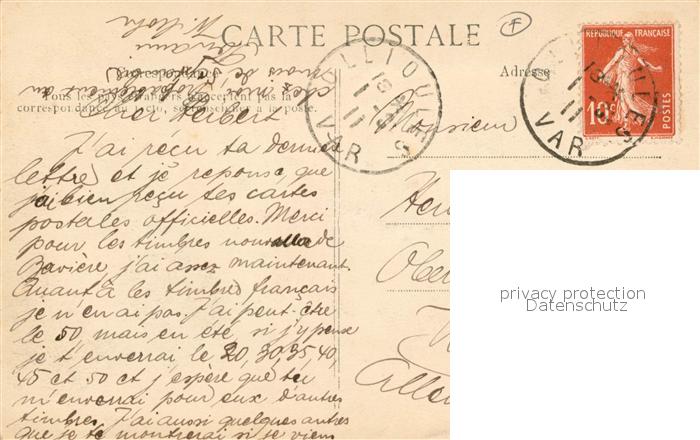 CARTE POSTALE
Correspondance
Adresse
Tous les pays étrangers n'acceptent pas la
correspondance au recto, se renseigner à la poste.
RÉPUBLIQUE FRANÇAISE
10c
POSTES
OLLIOULES
VAR
OLLIOULES
VAR
Cher Herbert
J'ai reçu ta dernière
lettre et je reponse que
j'ai bien reçu tes cartes
postales officielles. Merci
pour les timbres nouvelle de
Bavière, j'ai assez maintenant.
Quant à les timbres français
je n'en ai pas. J'ai peut-être
le 50, mais en été, si j'y pense
je t'enverrai le 20, 30, 35, 40,
45 et 50 et j'espère que tu
m'enverrai pour eux d'autres
timbres. J'ai aussi quelques autres
que je te montrerai si je viens
chez mes au
mois de
Wilhelm
Monsieur
Ober
Allem
privacy protection
Datenschutz